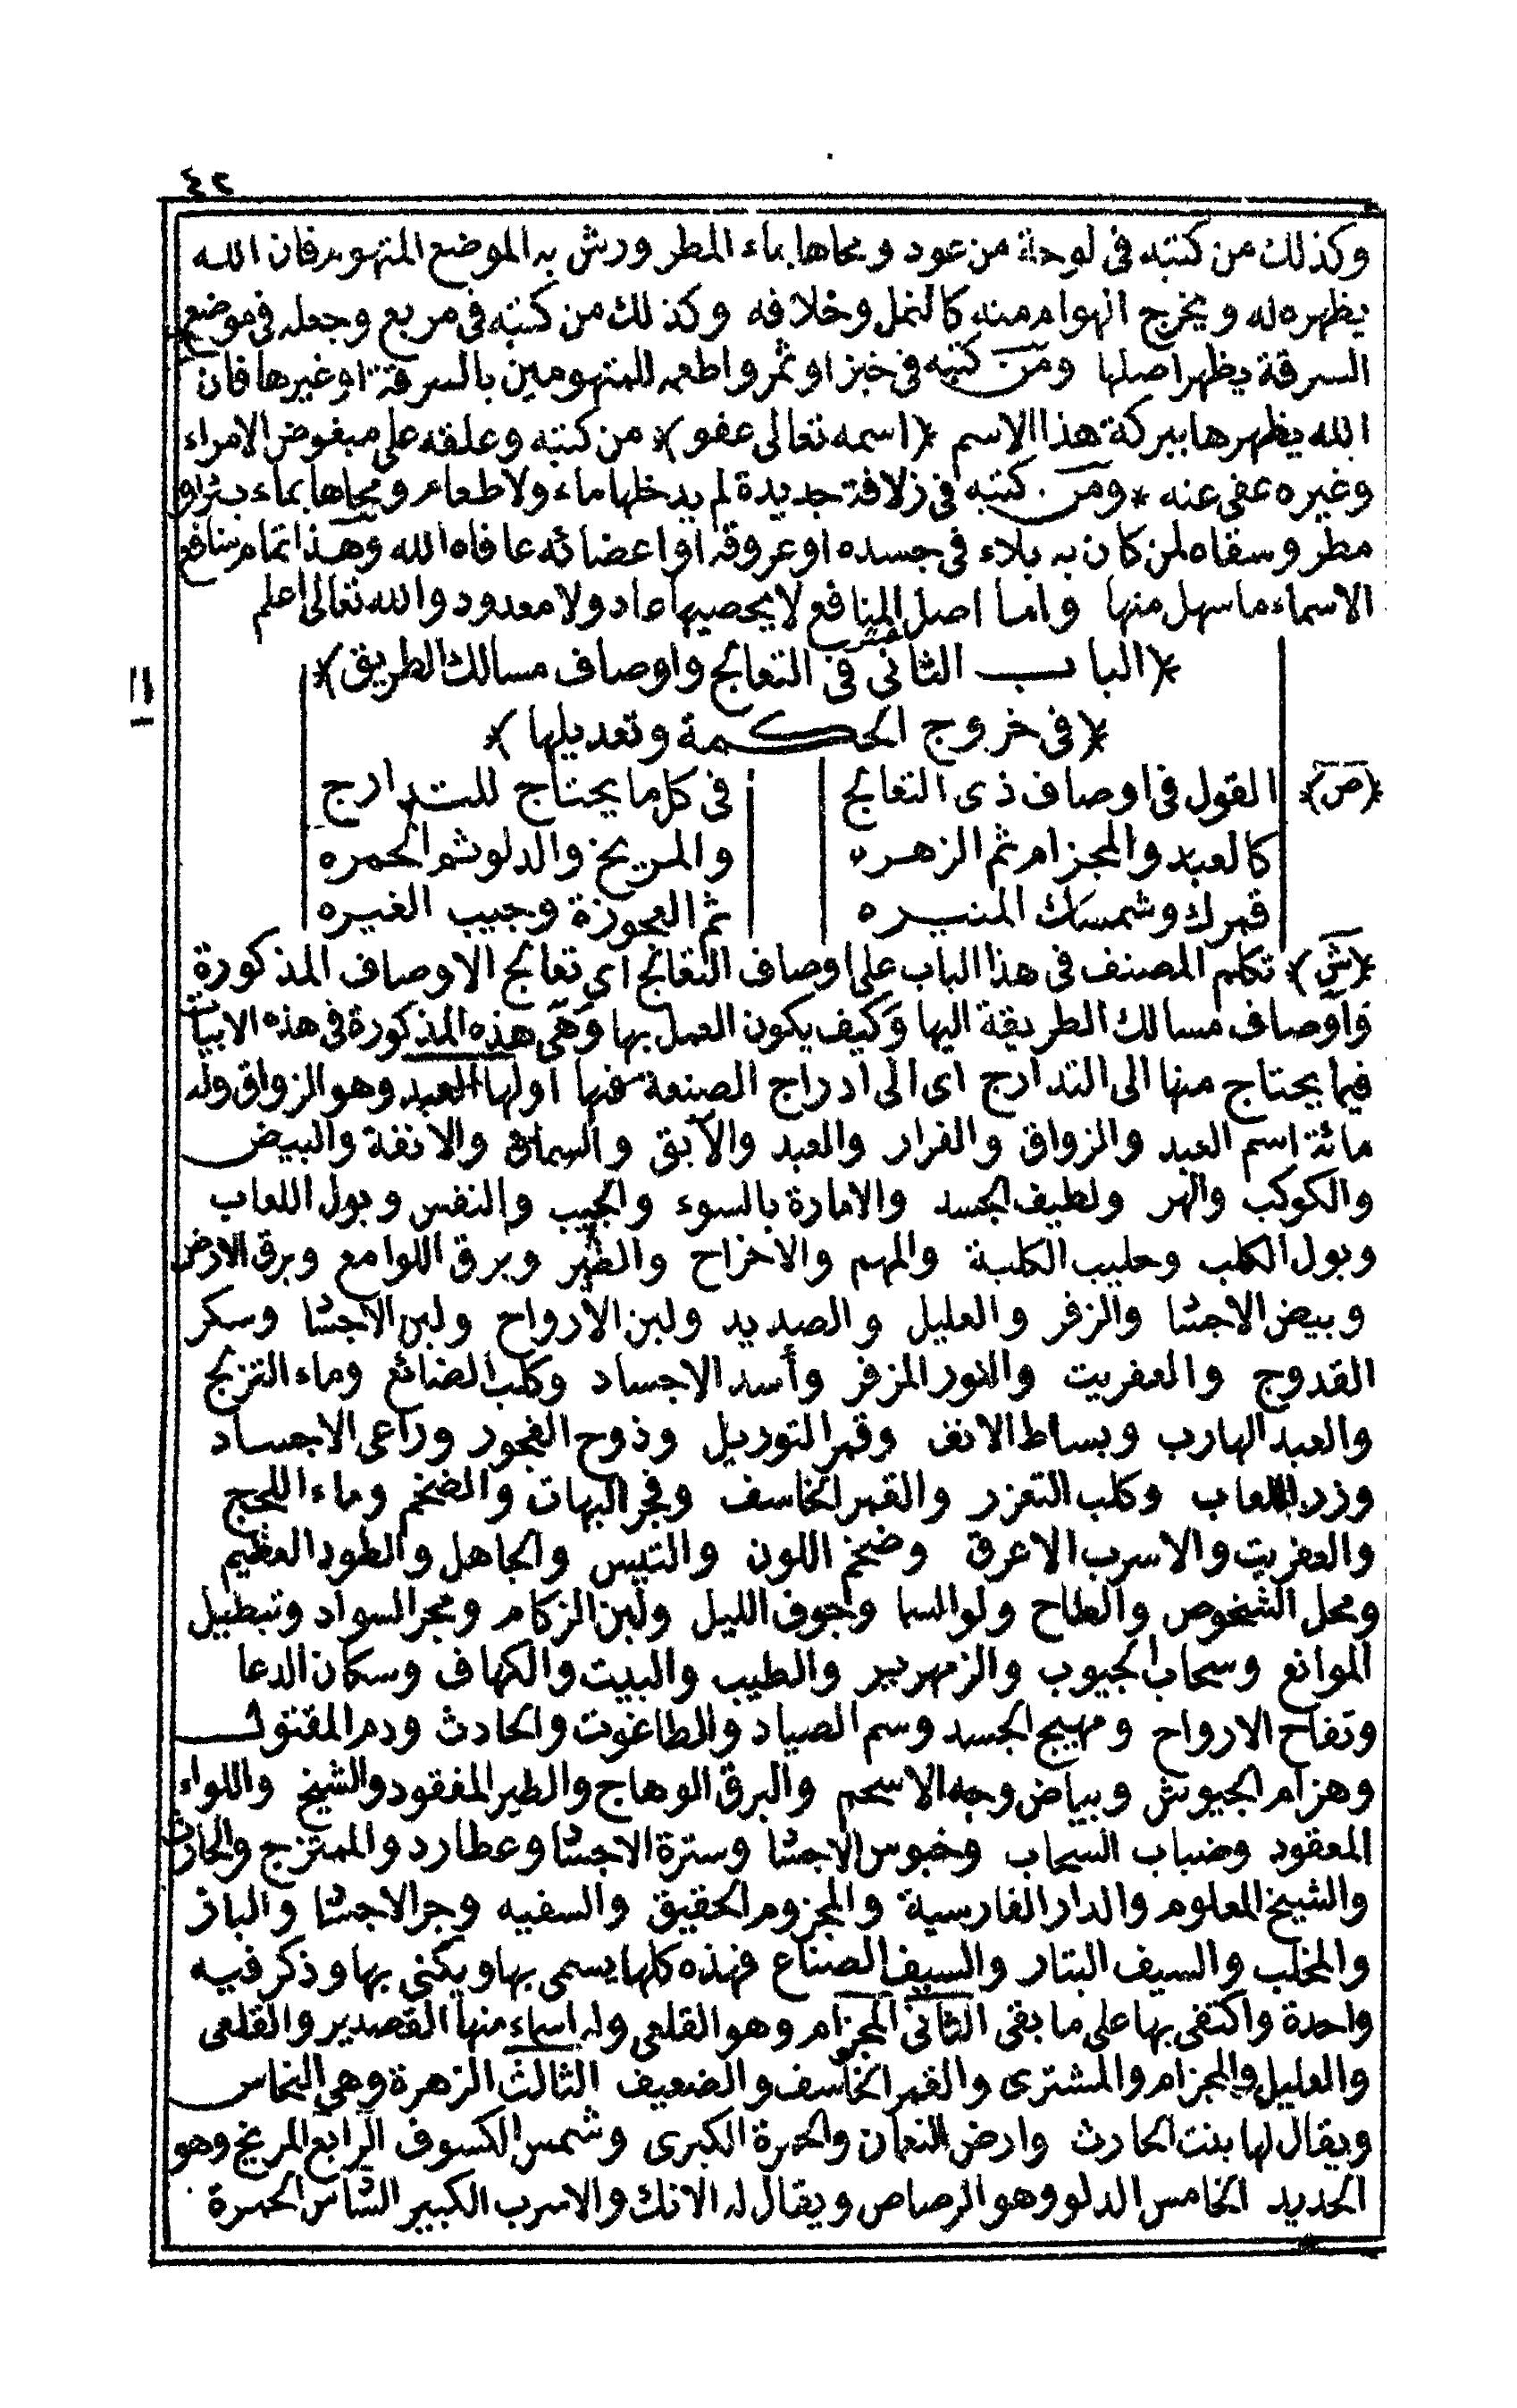 ٤٢
وكذلك من كتبه فى لوحة من عود ومحاها بماء المطر ورش به الموضع المتهوم فان الله
يظهره له ويخرج الهوام منه كالنمل وخلافه وكذلك من كتبه فى مربع وجعله فى موضع
السرقة يظهر اصلها ومن كتبه فى خبز او تمر واطعمه للمتهومين بالسرقة او غيرها فان
الله يظهرها ببركة هذا الاسم ﴿اسمه تعالى عفو﴾ من كتبه وعلقه على مبغوض الامراء
وغيره عفى عنه * ومن كتبه فى زلافة جديدة لم يدخلها ماء ولا طعام ومحاها بماء بئر او
مطر وسقاه لمن كان به بلاء فى جسده او عروقه او اعضائه عافاه الله وهذا تمام منافع
الاسماء ما سهل منها واما اصل المنافع لا يحصيها عاد ولا معدود والله تعالى اعلم
﴿الباب الثانى فى التعابج واوصاف مسالك الطريق﴾
﴿فى خروج الحكمة وتعديلها﴾
﴿ص﴾ القول فى اوصاف ذى التعابج فى كل ما يحتاج للتدارج
كالعبد والمجزام ثم الزهره والمريخ والدلو ثم الحمره
قمرك وشمسك المنيره ثم العجوزة وجيب الغيره
﴿ش﴾ تكلم المصنف فى هذا الباب على اوصاف التعابج اى تعابج الاوصاف المذكورة
واوصاف مسالك الطريقة اليها وكيف يكون العمل بها وهى هذه المذكورة فى هذه الابيات
فيما يحتاج منها الى التدارج اى الى ادراج الصنعة فمنها اولها العبد وهو الزواق وله
مائة اسم العبد والزواق والفرار والعبد والآبق والسماق والانفة والبيض
والكوكب والهر ولطيف الجسد والامارة بالسوء والجيب والنفس وبول اللعاب
وبول الكلب وحليب الكلبة والمهم والاخراح والطير وبرق اللوامع وبرق الارض
وبيض الاجشا والزفر والعليل والصديد ولبن الأرواح ولبن الاجشا وسكر
القدوج والعفريت والنور المزفر وأسد الاجساد وكلب الضائع وماء التزبج
والعبد الهارب وبساط الانف وقمر التوريل وذوح الفجور وراعى الاجساد
وزد اللعاب وكلب التعزر والقمر الخاسف وفجر البهات والضخم وماء اللجج
والعفريت والاسرب الاعرق وضخم اللون والتيس والجاهل والطود العظيم
ومحل الشخوص والطاح ولو السما وجوف الليل ولبن الزكام ومجر السواد وتبطيل
الموانع وسحاب الجيوب والزمهرير والطيب والبيت والكهاف وسكان الدعا
وتفاح الارواح ومهيج الجسد وسم الصياد والطاغوت والحادث ودم المقتول
وهزام الجيوش وبياض وجه الاسحم والبرق الوهاج والطير المفقود والشيخ واللواء
المعقود وضباب السحاب وخبوس الاجشا وسترة الاجشا وعطارد والممتزج والحارث
والشيخ المعلوم والدار الفارسية والمجزوم الحقيق والسفيه وجر الاجشا والباز
والمخلب والسيف البتار والسيف الصناع فهذه كلها يسمى بها ويكنى بها وذكر فيه
واحدة واكتفى بها على ما بقى الثانى المجزام وهو القلعى وله اسماء منها القصدير والقلعى
والعليل والمجزام والمشترى والقمر الخاسف والضعيف الثالث الزهرة وهى النحاس
ويقال لها بنت الحارث وارض النعمان والحمرة الكبرى وشمس الكسوف الرابع المريخ وهو
الحديد الخامس الدلو وهو الرصاص ويقال له الانك والاسرب الكبير السادس الحمرة